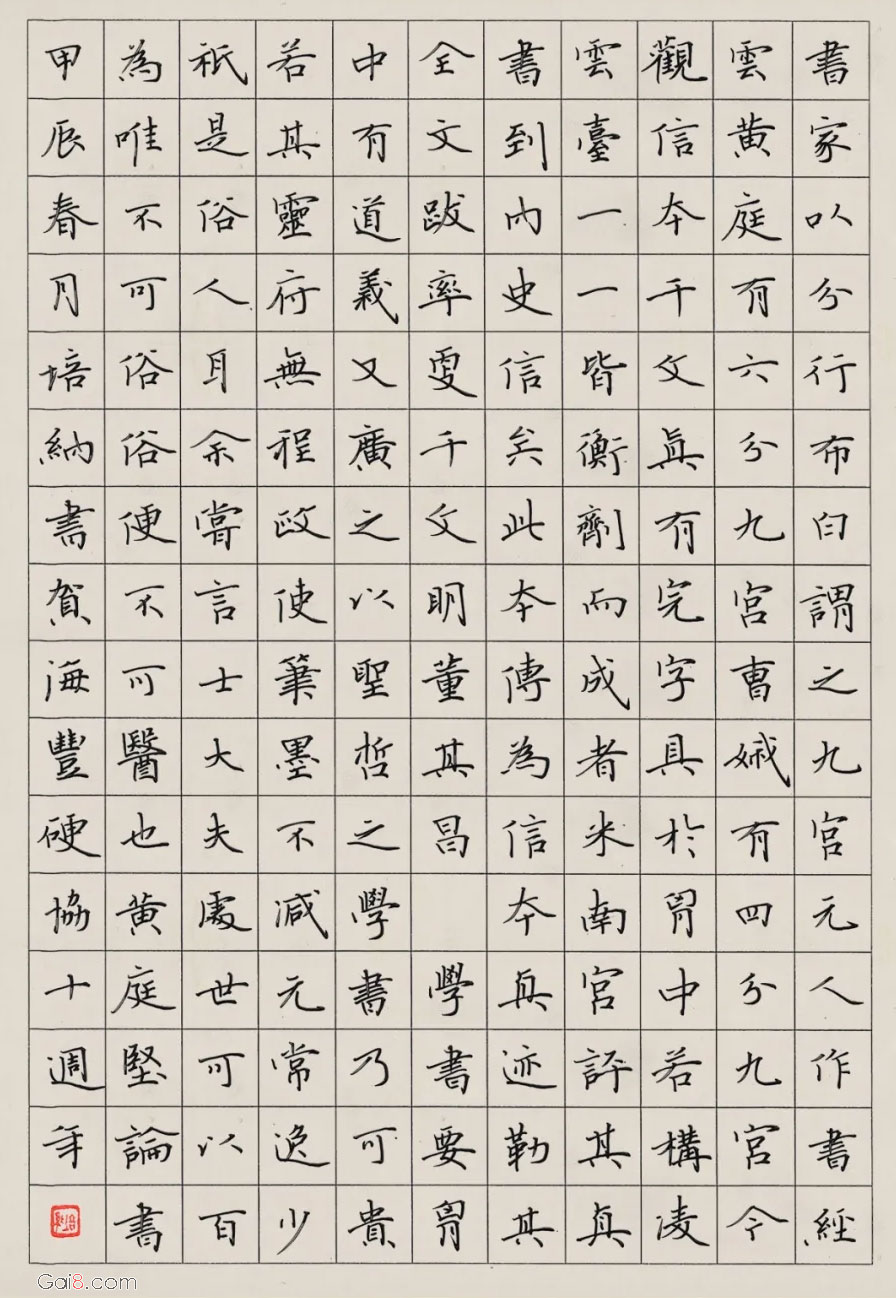 書家以分行布白謂之九宮元人作書經
雲黃庭有六分九宮曹娥有四分九宮今
觀信本千文真有完字具於胷中若構凌
雲臺一一皆衡劑而成者米南宮評其真
書到內史信矣此本傳為信本真迹勒其
全文跋率更千文明董其昌 學書要胷
中有道義又廣之以聖哲之學書乃可貴
若其靈府無程政使筆墨不減元常逸少
祇是俗人耳余嘗言士大夫處世可以百
為唯不可俗俗便不可醫也黃庭堅論書
甲辰春月培納書賀海豐硬協十週年
Gai8.com